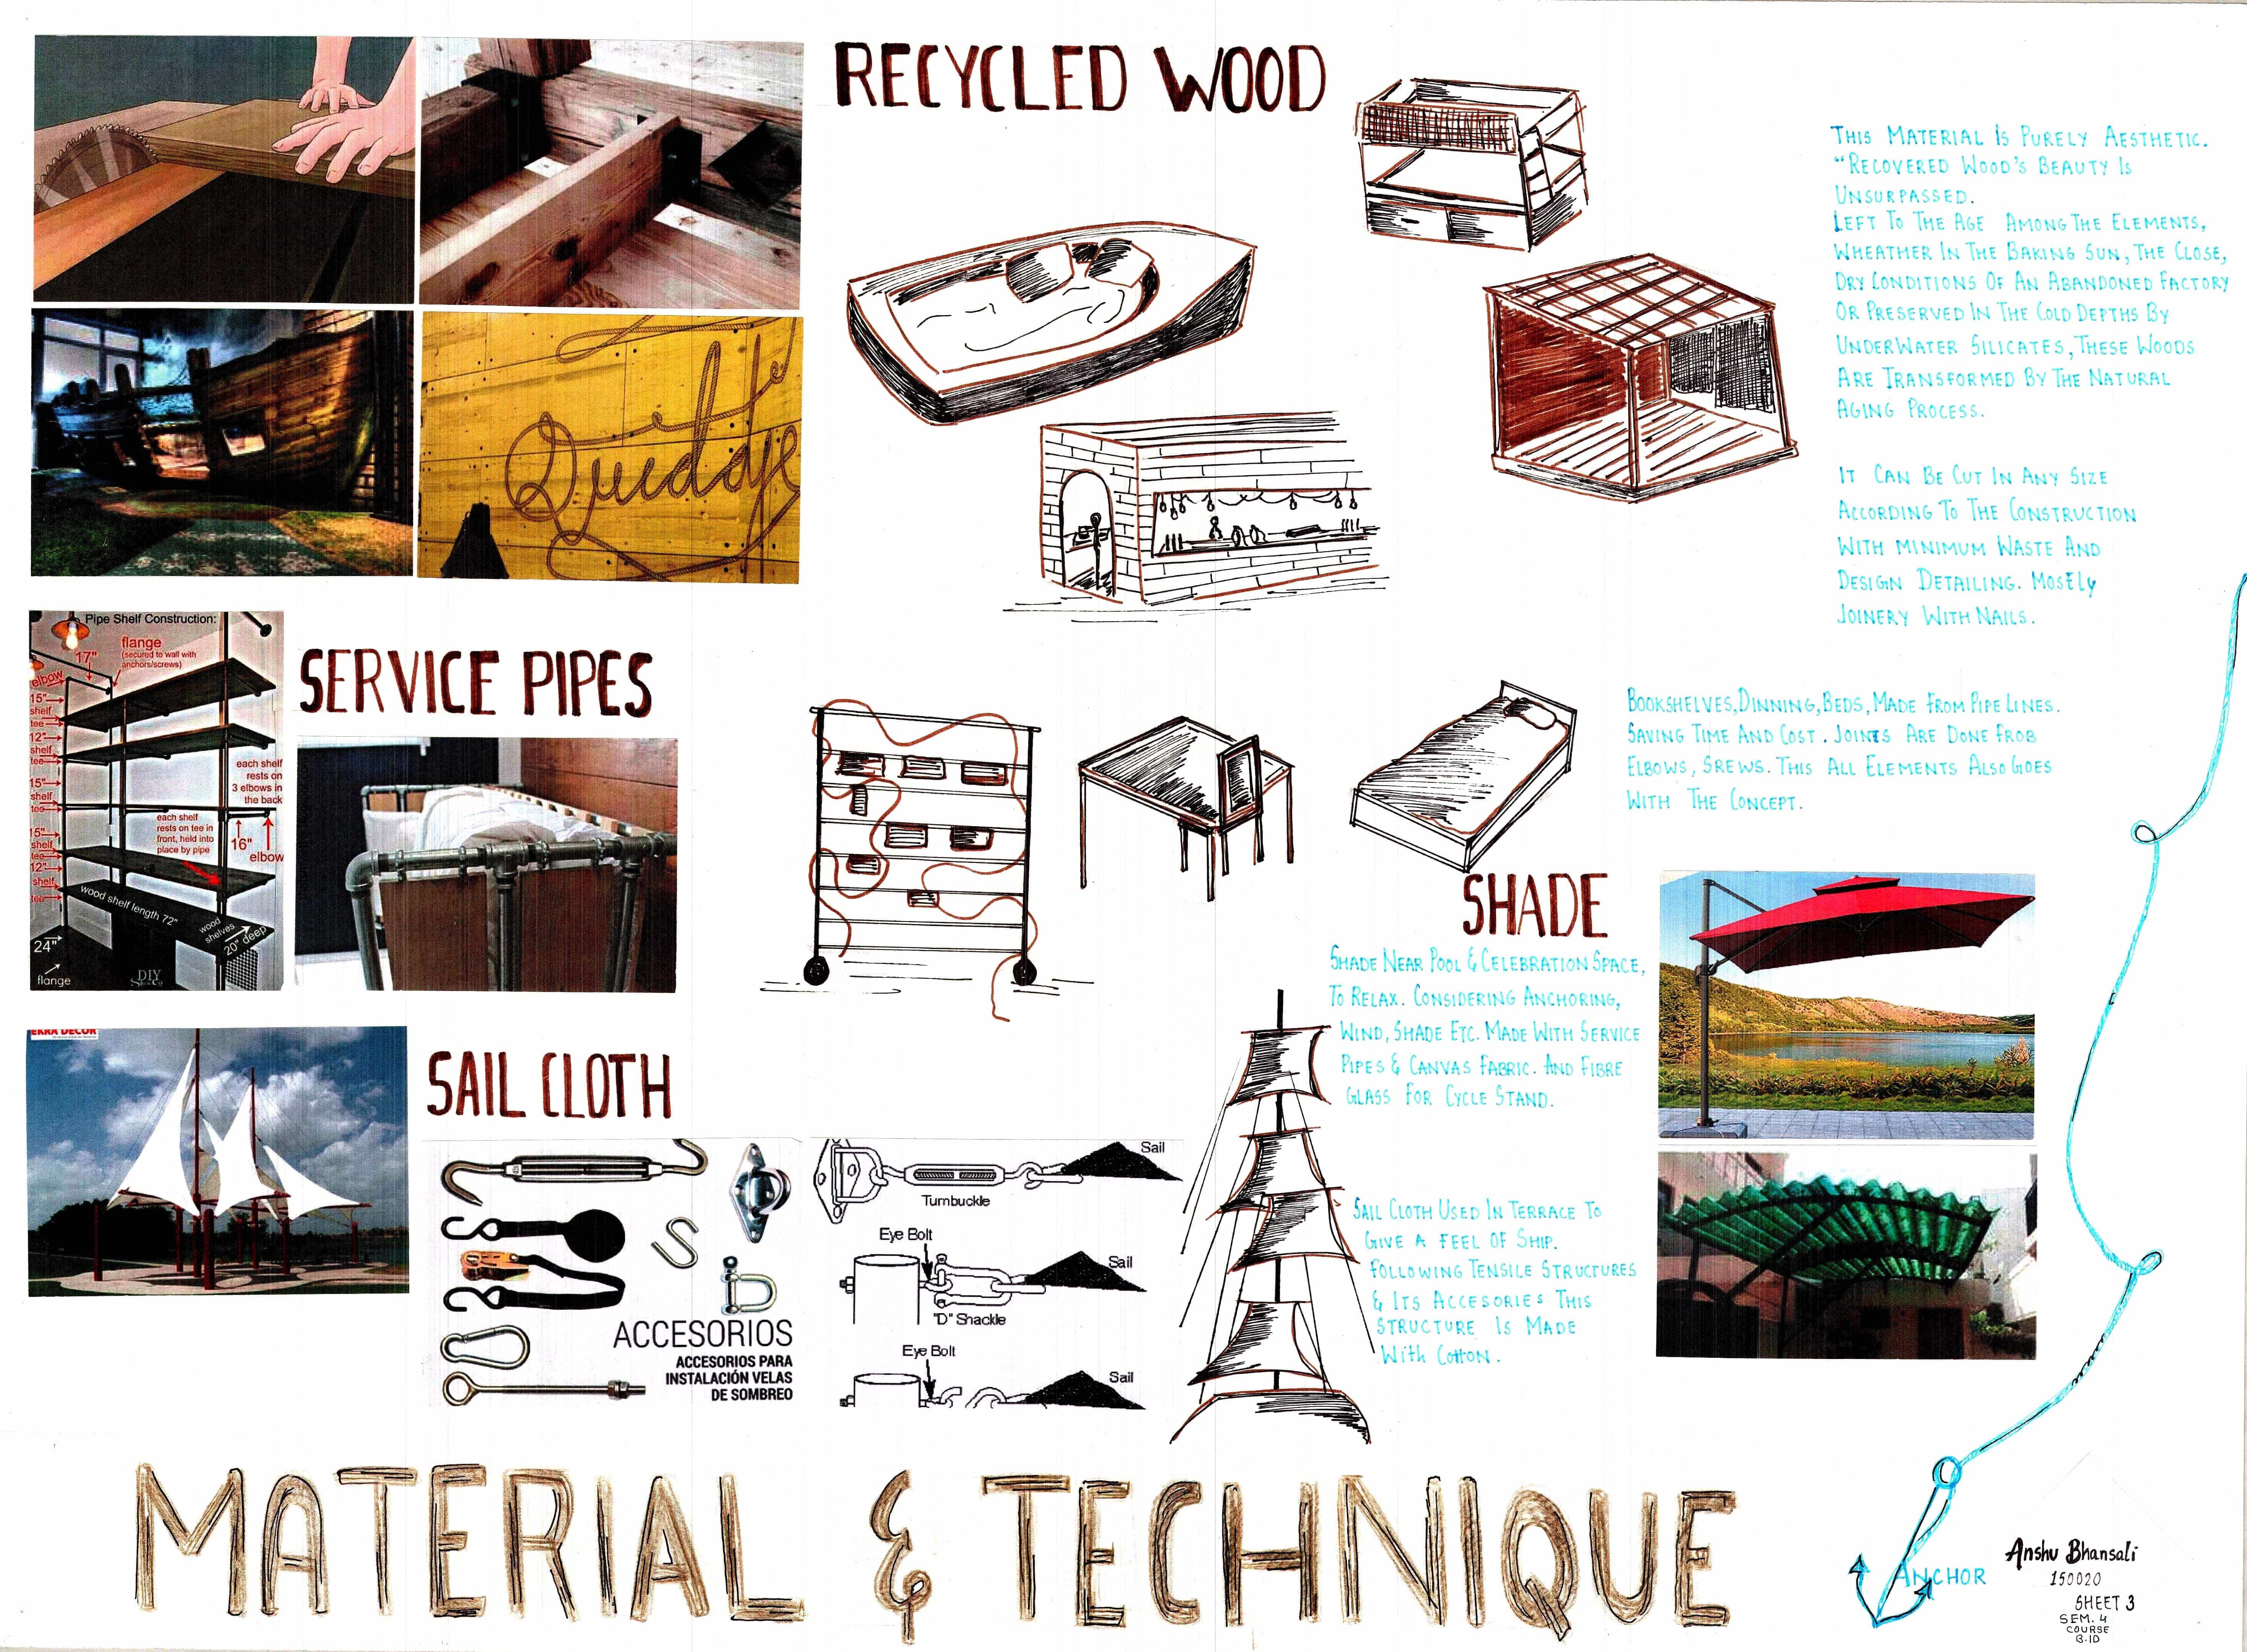 RECYCLED WOOD
THIS MATERIAL IS PURELY AESTHETIC.
"RECOVERED WOOD'S BEAUTY IS
UNSURPASSED.
LEFT TO THE AGE AMONG THE ELEMENTS,
WHEATHER IN THE BAKING SUN, THE CLOSE,
DRY CONDITIONS OF AN ABANDONED FACTORY
OR PRESERVED IN THE COLD DEPTHS BY
UNDERWATER SILICATES, THESE WOODS
ARE TRANSFORMED BY THE NATURAL
AGING PROCESS.
IT CAN BE CUT IN ANY SIZE
ACCORDING TO THE CONSTRUCTION
WITH MINIMUM WASTE AND
DESIGN DETAILING. MOSTLY
JOINERY WITH NAILS.
Pipe Shelf Construction:
flange
(secured to wall with
anchors/screws)
17"
elbow
15"
shelf
tee
12"
shelf
tee
15"
shelf
tee
15"
shelf
tee
12"
shelf
tee
each shelf
rests on
3 elbows in
the back
each shelf
rests on tee in
front, held into
place by pipe
16"
elbow
wood shelf length 72"
wood
shelves
20" deep
24"
flange
DIY
SERVICE PIPES
BOOKSHELVES, DINNING, BEDS, MADE FROM PIPE LINES.
SAVING TIME AND COST. JOINTS ARE DONE FROB
ELBOWS, SREWS. THIS ALL ELEMENTS ALSO GOES
WITH THE CONCEPT.
SHADE
SHADE NEAR POOL & CELEBRATION SPACE,
TO RELAX. CONSIDERING ANCHORING,
WIND, SHADE ETC. MADE WITH SERVICE
PIPES & CANVAS FABRIC. AND FIBRE
GLASS FOR CYCLE STAND.
SAIL CLOTH
ACCESORIOS
ACCESORIOS PARA
INSTALACIÓN VELAS
DE SOMBREO
Sail
Turnbuckle
Eye Bolt
Sail
"D" Shackle
Eye Bolt
Sail
SAIL CLOTH USED IN TERRACE TO
GIVE A FEEL OF SHIP.
FOLLOWING TENSILE STRUCTURES
& ITS ACCESORIES THIS
STRUCTURE IS MADE
WITH COTTON.
MATERIAL & TECHNIQUE
ANCHOR
Anshu Bhansali
150020
SHEET 3
SEM. 4
COURSE
B.ID